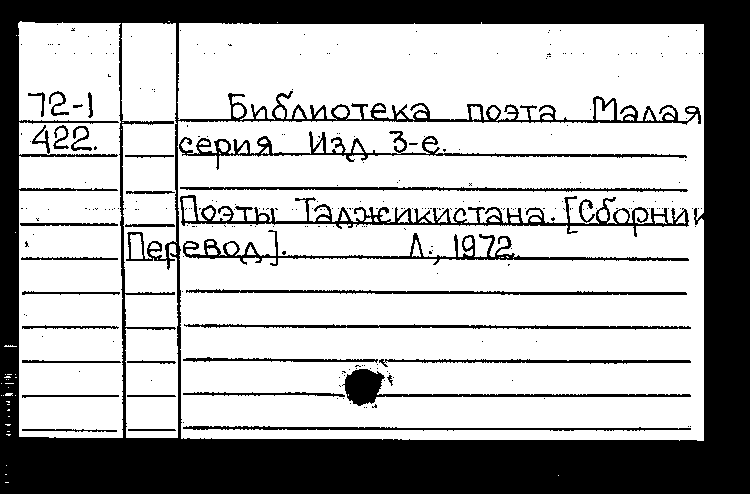 72-1 Библиотека поэта. Малая
422. серия. Изд. 3-е.
Поэты Таджикистана. [Сборник
Перевод.]. Л., 1972.